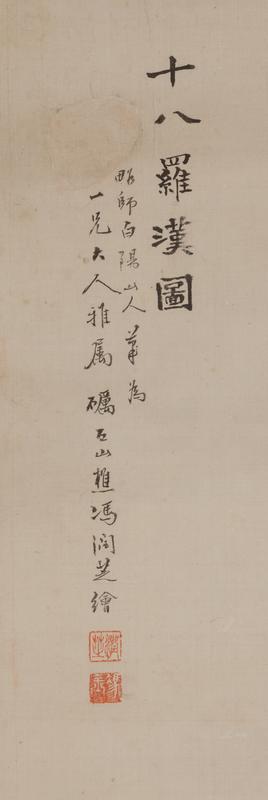 十八羅漢圖
略師白陽山人筆為
一兄大人雅屬礪石山樵馮潤芝繪
潤芝